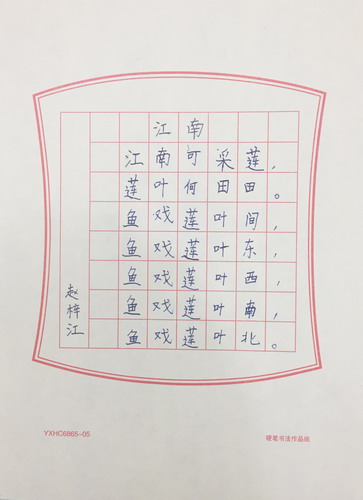 江南
江南可采莲，
莲叶何田田。
鱼戏莲叶间，
鱼戏莲叶东，
鱼戏莲叶西，
鱼戏莲叶南，
鱼戏莲叶北。
赵梓江
YXHC6865-05
硬笔书法作品纸